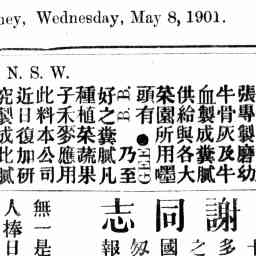 ney, Wednesday, May 8, 1901.
N. S. W.
張專製磨幼
牛骨灰及牛
血製成糞膩
供給與各大
菜園所用嘿
頭有●EED
B. B. 乃至
好之糞膩凡
種植菜蔬果
子禾麥應用
此料本公司
近日復加研
究製成比膩
謝同志
無一是
人捧日